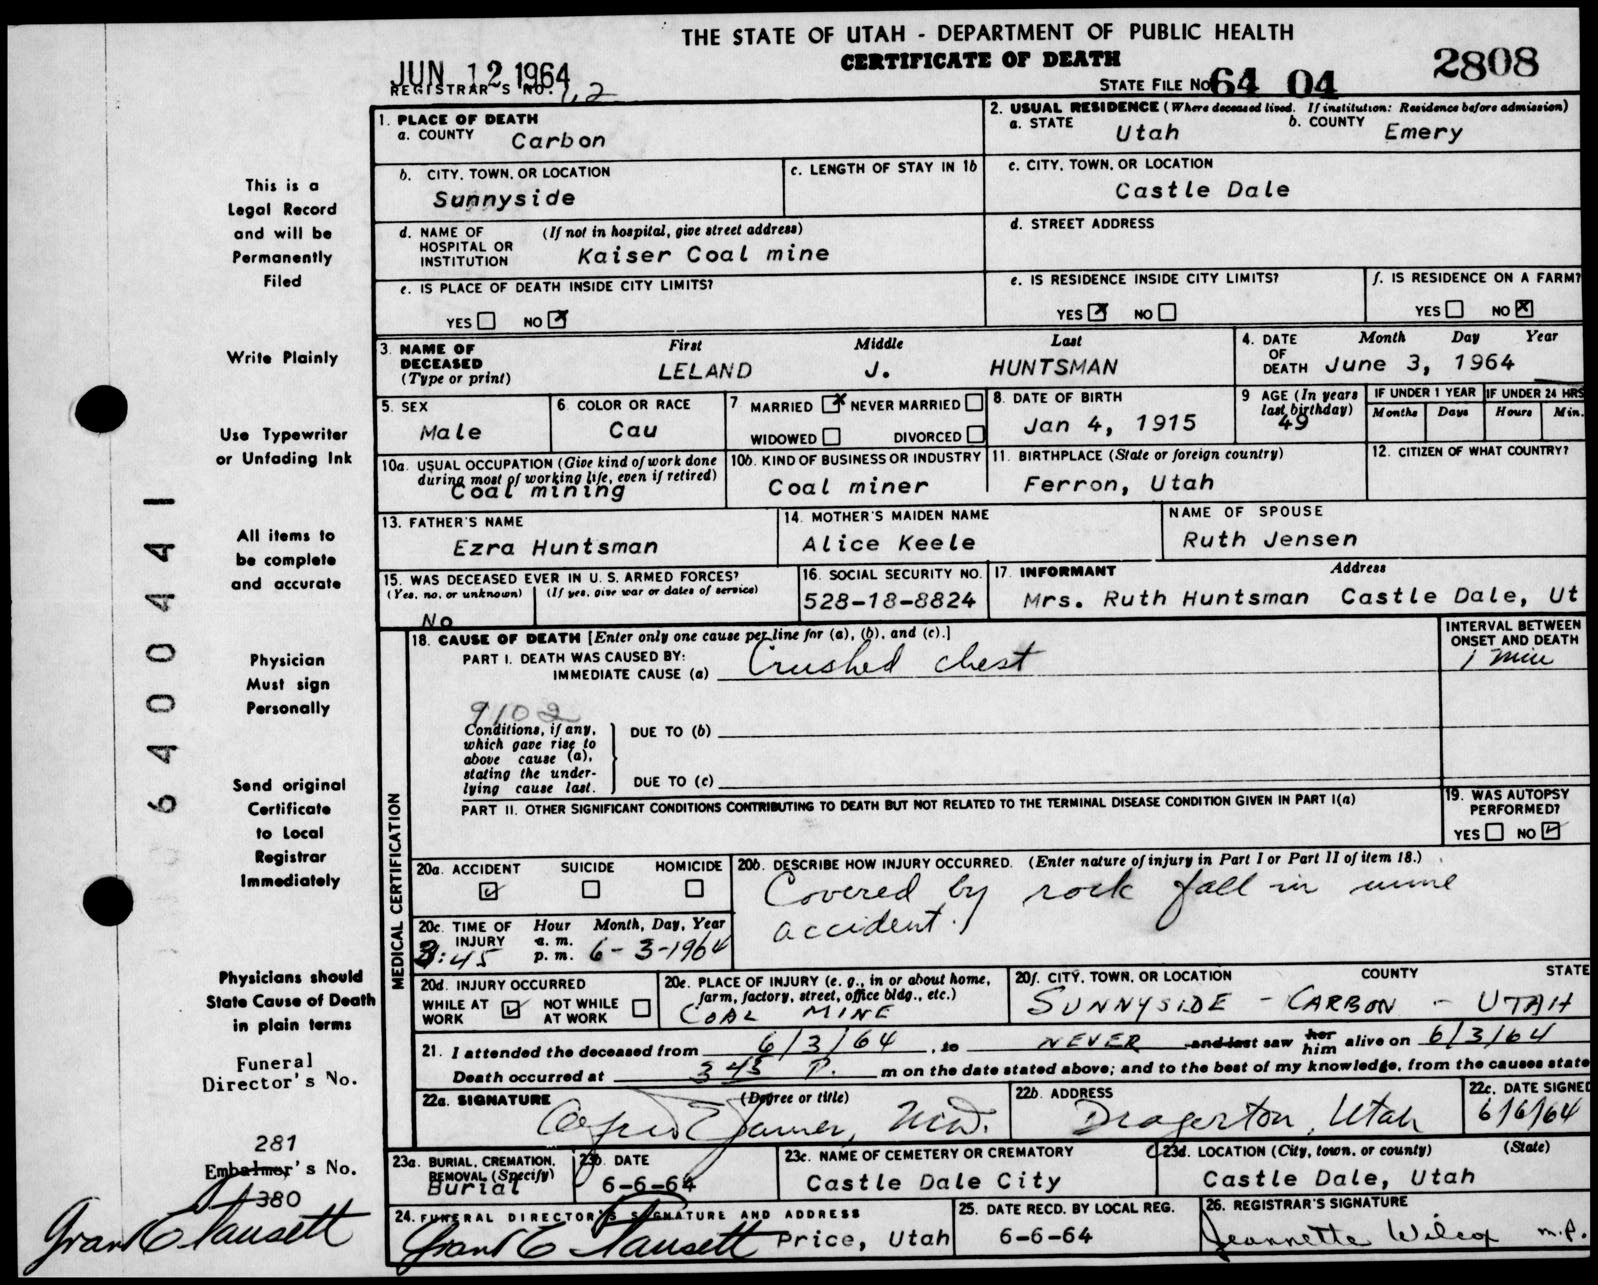 THE STATE OF UTAH - DEPARTMENT OF PUBLIC HEALTH
CERTIFICATE OF DEATH
JUN 12 1964
REGISTRAR'S NO. 62
STATE FILE NO. 64 04 2808
1. PLACE OF DEATH
a. COUNTY Carbon
2. USUAL RESIDENCE (Where deceased lived. If institution: Residence before admission)
a. STATE Utah b. COUNTY Emery
b. CITY, TOWN, OR LOCATION Sunnyside
c. LENGTH OF STAY IN 1b
c. CITY, TOWN, OR LOCATION Castle Dale
d. NAME OF HOSPITAL OR INSTITUTION (If not in hospital, give street address) Kaiser Coal mine
d. STREET ADDRESS
e. IS PLACE OF DEATH INSIDE CITY LIMITS?
YES NO
e. IS RESIDENCE INSIDE CITY LIMITS?
YES NO
f. IS RESIDENCE ON A FARM?
YES NO
3. NAME OF DECEASED (Type or print) First Middle Last
LELAND J. HUNTSMAN
4. DATE OF DEATH Month Day Year
June 3, 1964
5. SEX Male
6. COLOR OR RACE Cau
7 MARRIED NEVER MARRIED
WIDOWED DIVORCED
8. DATE OF BIRTH Jan 4, 1915
9 AGE (In years last birthday) 49
IF UNDER 1 YEAR Months Days
IF UNDER 24 HRS Hours Min.
10a. USUAL OCCUPATION (Give kind of work done during most of working life, even if retired) Coal mining
10b. KIND OF BUSINESS OR INDUSTRY Coal miner
11. BIRTHPLACE (State or foreign country) Ferron, Utah
12. CITIZEN OF WHAT COUNTRY?
13. FATHER'S NAME Ezra Huntsman
14. MOTHER'S MAIDEN NAME Alice Keele
NAME OF SPOUSE Ruth Jensen
15. WAS DECEASED EVER IN U. S. ARMED FORCES?
(Yes, no, or unknown) (If yes, give war or dates of service)
No
16. SOCIAL SECURITY NO. 528-18-8824
17. INFORMANT Address
Mrs. Ruth Huntsman Castle Dale, Ut
MEDICAL CERTIFICATION
18. CAUSE OF DEATH [Enter only one cause per line for (a), (b), and (c).]
PART I. DEATH WAS CAUSED BY:
IMMEDIATE CAUSE (a) Crushed chest
INTERVAL BETWEEN ONSET AND DEATH
1 min
9102
Conditions, if any, which gave rise to above cause (a), stating the underlying cause last.
DUE TO (b)
DUE TO (c)
PART II. OTHER SIGNIFICANT CONDITIONS CONTRIBUTING TO DEATH BUT NOT RELATED TO THE TERMINAL DISEASE CONDITION GIVEN IN PART I(a)
19. WAS AUTOPSY PERFORMED?
YES NO
20a. ACCIDENT SUICIDE HOMICIDE
20b. DESCRIBE HOW INJURY OCCURRED. (Enter nature of injury in Part I or Part II of item 18.)
Covered by rock fall in mine
accident.
20c. TIME OF INJURY Hour Month, Day, Year
a. m.
3:45 p. m. 6-3-1964
20d. INJURY OCCURRED
WHILE AT WORK NOT WHILE AT WORK
20e. PLACE OF INJURY (e. g., in or about home, farm, factory, street, office bldg., etc.)
COAL MINE
20f. CITY, TOWN, OR LOCATION COUNTY STATE
SUNNYSIDE - CARBON - UTAH
21. I attended the deceased from 6/3/64, to NEVER and last saw her him alive on 6/3/64
Death occurred at 3 45 P. m on the date stated above; and to the best of my knowledge, from the causes state
22a. SIGNATURE (Degree or title) M.D.
22b. ADDRESS Dragerton, Utah
22c. DATE SIGNED 6/6/64
23a. BURIAL, CREMATION, REMOVAL (Specify) Burial
23b. DATE 6-6-64
23c. NAME OF CEMETERY OR CREMATORY Castle Dale City
23d. LOCATION (City, town, or county) (State)
Castle Dale, Utah
24. FUNERAL DIRECTOR'S SIGNATURE AND ADDRESS
Grant E Fausett Price, Utah
25. DATE RECD. BY LOCAL REG. 6-6-64
26. REGISTRAR'S SIGNATURE
Jeannette Wilcox
This is a
Legal Record
and will be
Permanently
Filed
Write Plainly
Use Typewriter
or Unfading Ink
All items to
be complete
and accurate
Physician
Must sign
Personally
Send original
Certificate
to Local
Registrar
Immediately
Physicians should
State Cause of Death
in plain terms
Funeral
Director's No.
281
Embalmer's No.
380
Grant E Fausett
6400441